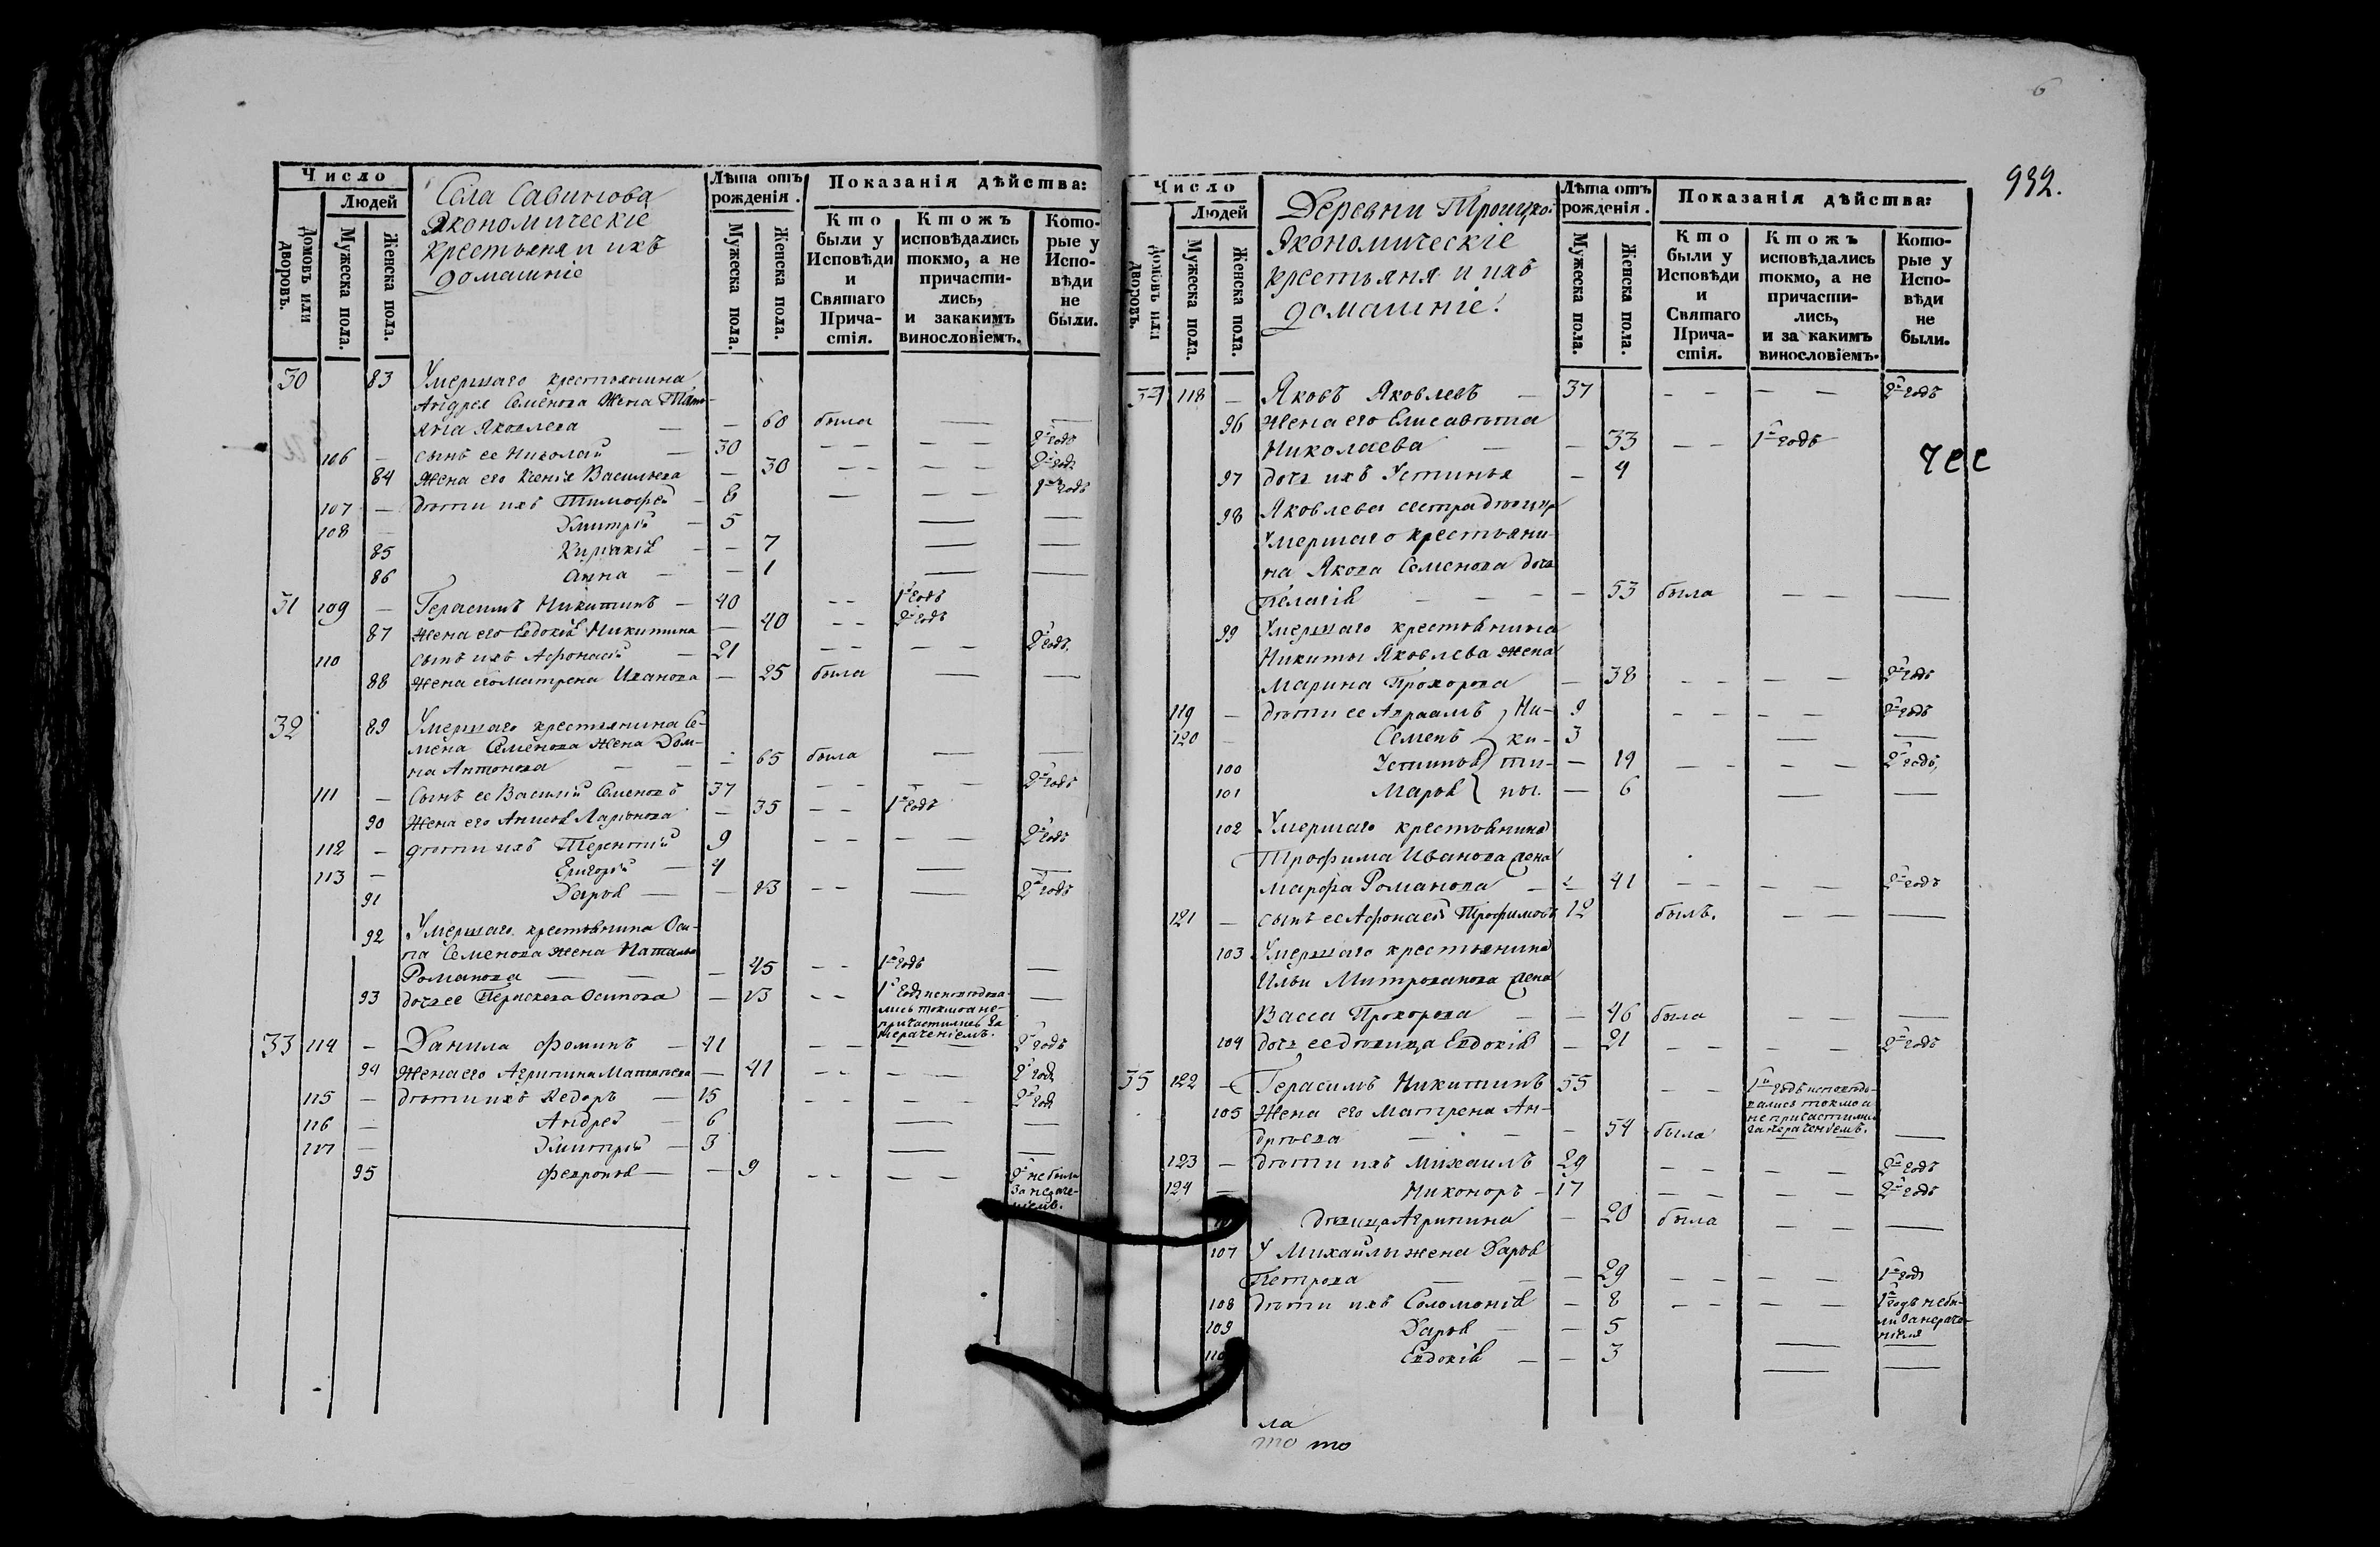 Число
Людей
Домовъ или дворовъ.
Мужеска пола.
Женска пола.
Села Савинова
Экономическіе
крестьяня и ихъ
домашніе
Лѣта отъ рожденія.
Мужеска пола.
Женска пола.
Показанія дѣйства:
Кто были у Исповѣди и Святаго Причастія.
Ктожъ исповѣдались токмо, а не причастились, и закакимъ винословіемъ.
Которые у Исповѣди не были.
30 83 Умершаго крестьянина
Андрея Семенова жена Тать-
яна Яковлева — — 60 была — —
106 — сынъ ее Николай — 30 – – – – 2й годъ
84 жена его Ксенія Васильева — 30 – – – – 2й годъ
107 — дѣти ихъ Тимофей – 6 — – – 1й годъ
108 — Дмитрій – 5 — —
85 Киріакія – – 7 — —
86 Анна – – 1 — —
31 109 — Герасимъ Никитинъ – 40 – – 1й годъ
87 жена его Евдокія Никитина — 40 – – 2й годъ
110 сынъ ихъ Афонасій — 21 – – – – 2й годъ.
88 жена его Матрена Иванова — 25 была — —
32 89 Умершаго крестьянина Се-
мена Семенова жена Дом-
на Антонова — – 65 была — —
111 — Сынъ ее Василій Семеновъ 37 – – – – 2й годъ
90 Жена его Анисія Ларіонова — 35 – – 1й годъ
112 – дѣти ихъ Терентій 9 – – – – 2й годъ
113 – Григорій — 4 — —
91 Дарія — — 13 – – — 2й годъ
92 Умершаго крестьянина Оси-
па Семенова жена Наталья
Романова — — — 45 – – 1й годъ —
93 дочь ее Параскева Осипова — 13 – – 1й годъ исповѣдова- —
лись токмо а не
причастились за
нераченіемъ.
33 114 – Данила Фоминъ – 41 – – – – 2й годъ
94 Жена его Агрипина Матвѣева — 41 – – – – 2й годъ
115 — дѣти ихъ Ѳедоръ — 15 – – – – 2й годъ
116 — Андрей – 6 — —
117 — Дмитрій – 3 — —
95 Феврония — — 9 – – – – 2й не была
за нераче-
ніемъ.
6
932.
Число
Людей
Домовъ или дворовъ.
Мужеска пола.
Женска пола.
Деревни Троицкой
Экономическіе
крестьяня и ихъ
домашніе.
Лѣта отъ рожденія.
Мужеска пола.
Женска пола.
Показанія дѣйства:
Кто были у Исповѣди и Святаго Причастія.
Ктожъ исповѣдались токмо, а не причастились, и за какимъ винословіемъ.
Которые у Исповѣди не были.
34 118 — Яковъ Яковлевъ — 37 – – – – 2й годъ
96 жена его Елисавѣта
Николаева — – 33 – – 1й годъ
97 дочь ихъ Устинья – 4
98 Яковлева сестра дѣвица
Умершаго крестьяни-
на Якова Семенова дочь
Пелагія – – – – 53 была – – —
99 Умершаго крестьянина
Никиты Яковлева жена
Марина Прохорова — 38 – – – – 2й годъ
119 — дѣти ее Авраамъ } Ни- 9 – – – – 2й годъ
120 – Семенъ } ки- 3 — —
100 Устинья } ти- — 19 – – – – 2й годъ,
101 Марія } ны. — 6 — —
102 Умершаго крестьянина
Трофима Иванова жена
Марфа Романова — – 41 – – – – 2й годъ
121 — сынъ ее Афонасей Трофимовъ 12 былъ. – – —
103 Умершаго крестьянина
Ильи Митрованова жена
Васса Прохорова — – 46 была – – —
104 дочь ее дѣвица Евдокія — 21 – – – – 2й годъ
35 122 — Герасимъ Никитинъ 55 – – 1й годъ исповѣдо-
вался токмо а
не причастился
за нераченіемъ.
105 Жена его Матрена Ан-
дрѣева — – – – 54 была – – —
123 — дѣти ихъ Михаилъ 29 – – – – 2й годъ
124 — Никоноръ – 17 – – – – 2й годъ
дѣвица Агрипина — 20 была – – —
107 У Михайлы жена Дарія
Петрова — – – 29 – – – – 1й годъ
108 дѣти ихъ Соломонія – 8 – – – – 1й годъ небы-
ли за нераче-
ніемъ
109 Дарія – – 5 — —
110 Евдокія – – 3 — —
ла
то то